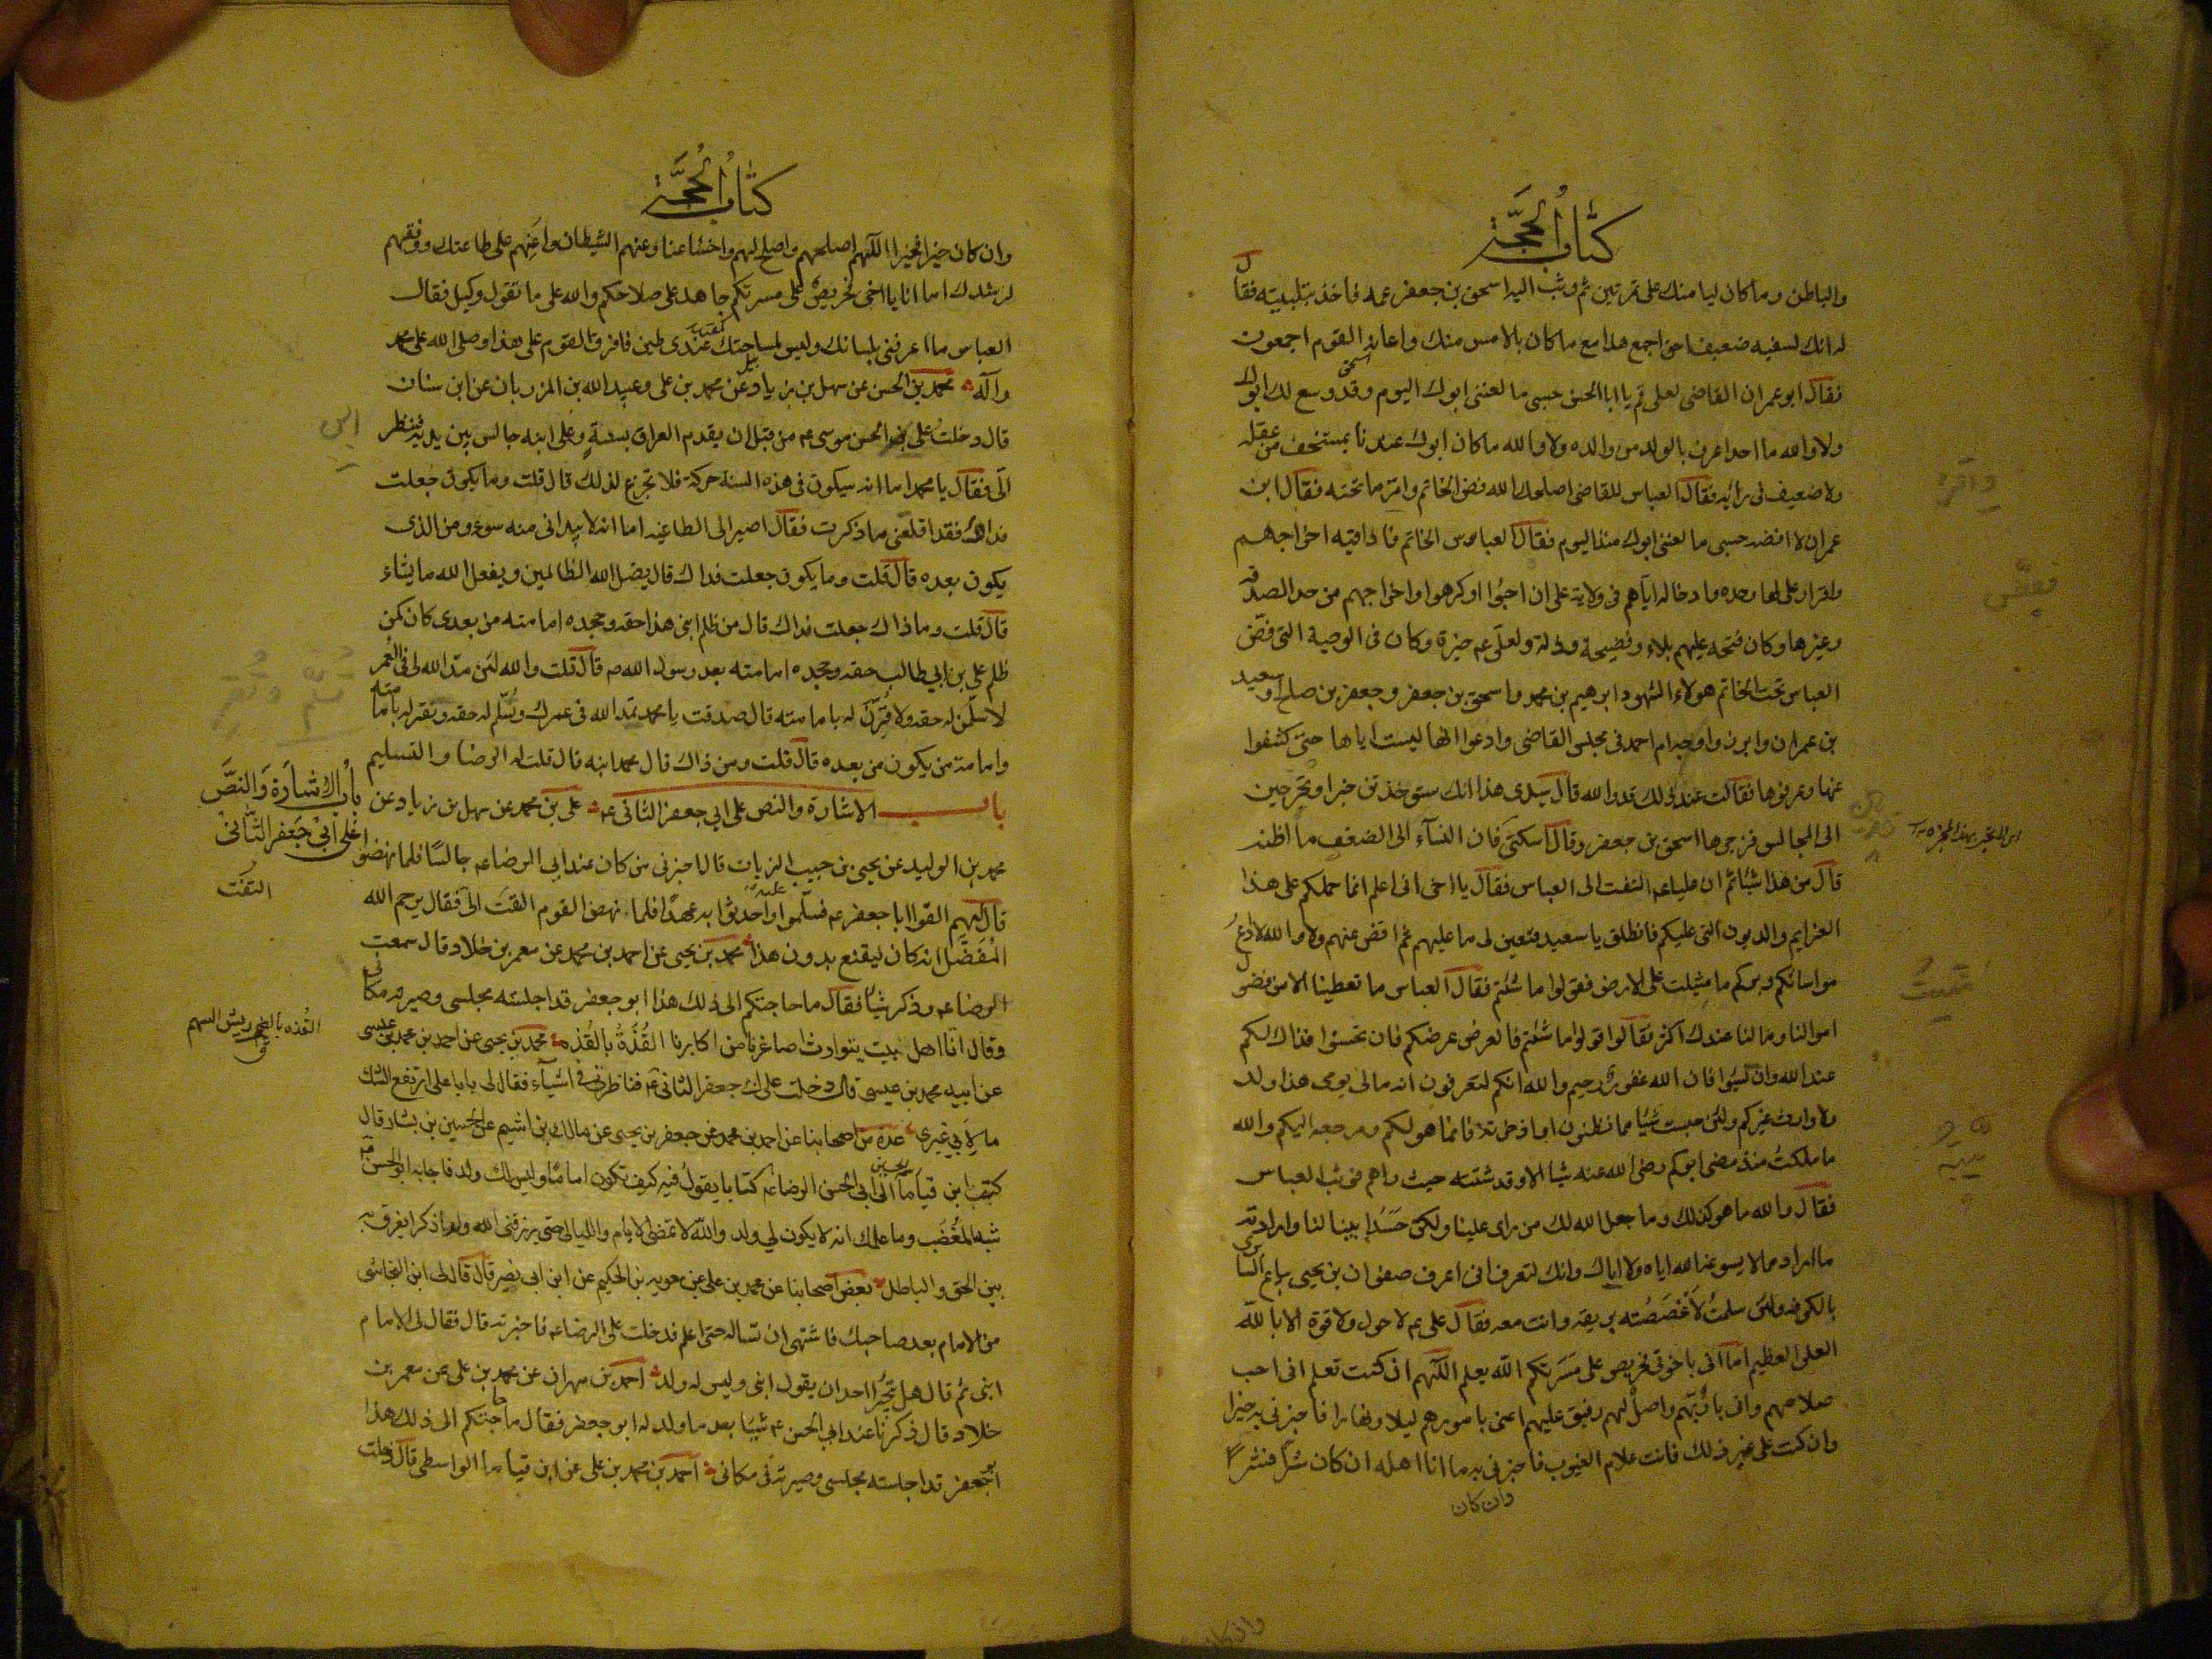 كتاب الحجة
والباطن وما كان ليامنك على تمرتين ثم وثب اليه اسحق بن جعفر عمه فاخذ بتلبيبه فقال
له انك لسفيه ضعيف احمق اجمع هذا مع ما كان بالامس منك واعانه القوم اجمعون
فقال ابو عمران القاضي لعلي قم يا ابا الحسن حسبي ما لعنني ابوك اليوم وقد وسع لك ابوك
ولا والله ما احد اعرف بالولد من والده ولا والله ما كان ابوك عندنا بمستخف من عقله
ولا ضعيف في رائه فقال العباس للقاضي اصلحك الله فض الخاتم واقرء ما تحته فقال ابن
عمران لا افضه حسبي ما لعنني ابوك منذ اليوم فقال العباس الخاتم فاذا فيه اخراجهم
واقرار علي لها وحده وادخاله اياهم في ولاية علي ان احبوا او كرهوا واخراجهم من حد الصدقة
وغيرها وكان فتحه عليهم بلاء وفضيحة وذلة ولعلي ع خيرة وكان في الوصية التي فض
العباس تحت الخاتم هولاء الشهود ابرهيم بن محمد واسحق بن جعفر وجعفر بن صلح وسعيد
بن عمران وابرزوا وجه ام احمد في مجلس القاضي وادعوا انها ليست اياها حتى كشفوا
عنها وعرفوها فقالت عند ذلك قد والله قال سيدي هذا انك ستوخذين جبرا وتخرجين
الى المجالس فزجرها اسحق بن جعفر وقال اسكتي فان النسآء الى الضعف ما اظنه
قال من هذا شيئا ثم ان عليا ع التفت الى العباس فقال يا اخي اني اعلم انما حملكم على هذا
الغرايم والديون التي عليكم فانطلق يا سعيد فتعين لي ما عليهم ثم اقض عنهم ولا والله لا ادع
مواساتكم وبركم ما مشيت على الارض فقولوا ما شئتم فقال العباس ما تعطينا الا من فضول
اموالنا وما لنا عندك اكثر فقال قولوا ما شئتم فالعرض عرضكم فان تحسنوا فذاك لكم
عند الله وان تسيئوا فان الله غفور رحيم والله انكم لتعرفون انه مالي يومي هذا ولد
ولا وارث غيركم ولئن حبست شيئا مما تظنون او ادخرته فانما هو لكم ومرجعه اليكم والله
ما ملكت منذ مضى ابوكم رضي الله عنه شيئا الا وقد شتته حيث رايتم فوثب العباس
فقال والله ما هو كذلك وما جعل الله لك من راى علينا ولكن حسد ابينا لنا وارادته
ما اراد مما لا يسوغه الله اياه ولا اياك وانك لتعرف اني اعرف صفوان بن يحيى بياع السابري
بالكوفة ولئن سلمت لاغصصته بريقه وانت معه فقال علي ع لا حول ولا قوة الا بالله
العلي العظيم اما اني يا خوتي فحريص على مسرتكم الله يعلم اللهم ان كنت تعلم اني احب
صلاحهم واني بار بهم واصل لهم رفيق عليهم اعنى بامورهم ليلا ونهارا فاجزني به خيرا
وان كنت على غير ذلك فانت علام الغيوب فاجزني به ما انا اهله ان كان شرا فشرا
وان كان
كتاب الحجة
وان كان خيرا فخيرا اللهم اصلحهم واصلح لهم واخسا عنا وعنهم الشيطان واعنهم على طاعتك ووفقهم
لرشدك اما انا يا اخي فحريص على مسرتكم جاهد على صلاحكم والله على ما نقول وكيل فقال
العباس ما اعرفني بلسانك وليس لمسحاتك عندي طين فافترق القوم على هذا وصلى الله على محمد
وآله محمد بن الحسن عن سهل بن زياد عن محمد بن علي وعبيد الله بن المرزبان عن ابن سنان
قال دخلت على ابي الحسن موسى ع من قبل ان يقدم العراق بسنة وعلي ابنه جالس بين يديه فنظر
الي فقال يا محمد اما انه سيكون في هذه السنة حركة فلا تجزع لذلك قال قلت وما يكون جعلت
فداك فقد اقلقني ما ذكرت فقال اصير الى الطاغية اما انه لا يبداني منه سوء ومن الذي
يكون بعده قال قلت وما يكون جعلت فداك قال يضل الله الظالمين ويفعل الله ما يشاء
قال قلت وما ذاك جعلت فداك قال من ظلم ابني هذا حقه وجحده امامته من بعدي كان كمن
ظلم علي بن ابي طالب حقه وجحده امامته بعد رسول الله ص قال قلت والله لئن مد الله لي في العمر
لاسلمن له حقه ولاقرن له بامامته قال صدقت يا محمد يمد الله في عمرك وتسلم له حقه وتقر له بامامته
وامامة من يكون من بعده قال قلت ومن ذاك قال محمد ابنه قال قلت له الرضا والتسليم
باب الاشارة والنص على ابي جعفر الثاني ع علي بن محمد عن سهل بن زياد عن
محمد بن الوليد عن يحيى بن حبيب الزيات قال اخبرني من كان عند ابي الرضا ع جالسا فلما نهضوا
قال لهم القوا ابا جعفر ع فسلموا عليه واحدثوا به عهدا فلما نهض القوم التفت الي فقال يرحم الله
المفضل انه كان ليقنع بدون هذا محمد بن يحيى عن احمد بن محمد عن معمر بن خلاد قال سمعت
الرضا ع وذكر شيئا فقال ما حاجتكم الى ذلك هذا ابو جعفر قد اجلسته مجلسي وصيرته مكاني
وقال انا اهل بيت يتوارث اصاغرنا عن اكابرنا القذة بالقذة محمد بن يحيى عن احمد بن محمد بن عيسى
عن ابيه محمد بن عيسى قال دخلت على ابي جعفر الثاني ع فناظرني في اشيآء فقال لي يا با علي ارتفع الشك
ما لابي غيري عدة من اصحابنا عن احمد بن محمد عن جعفر بن يحيى عن مالك بن اشيم عن الحسين بن بشار قال
كتب ابن قياما الى ابي الحسن الرضا ع كتابا يقول فيه كيف تكون اماما وليس لك ولد فاجابه ابو الحسن
شبه المغضب وما علمك انه لا يكون لي ولد والله لا تمضي الايام والليالي حتى يرزقني الله ولدا ذكرا يفرق به
بين الحق والباطل بعض اصحابنا عن محمد بن علي عن معوية بن الحكيم عن ابن ابي نصير قال قال لي ابن النجاشي
من الامام بعد صاحبك فاشتهي ان تساله حتى اعلم فدخلت على الرضا ع فاخبرته قال فقال لي الامام
ابني ثم قال هل يتجرا احد ان يقول ابني وليس له ولد احمد بن مهران عن محمد بن علي عن معمر بن
خلاد قال ذكرنا عند ابي الحسن ع شيئا بعد ما ولد له ابو جعفر فقال ما حاجتكم الى ذلك هذا
ابو جعفر قد اجلسته مجلسي وصيرته في مكاني احمد بن محمد بن علي عن ابن قياما الواسطي قال دخلت
باب الاشارة والنص
على ابي جعفر الثاني
التفت
القذه بالضم ريش السهم